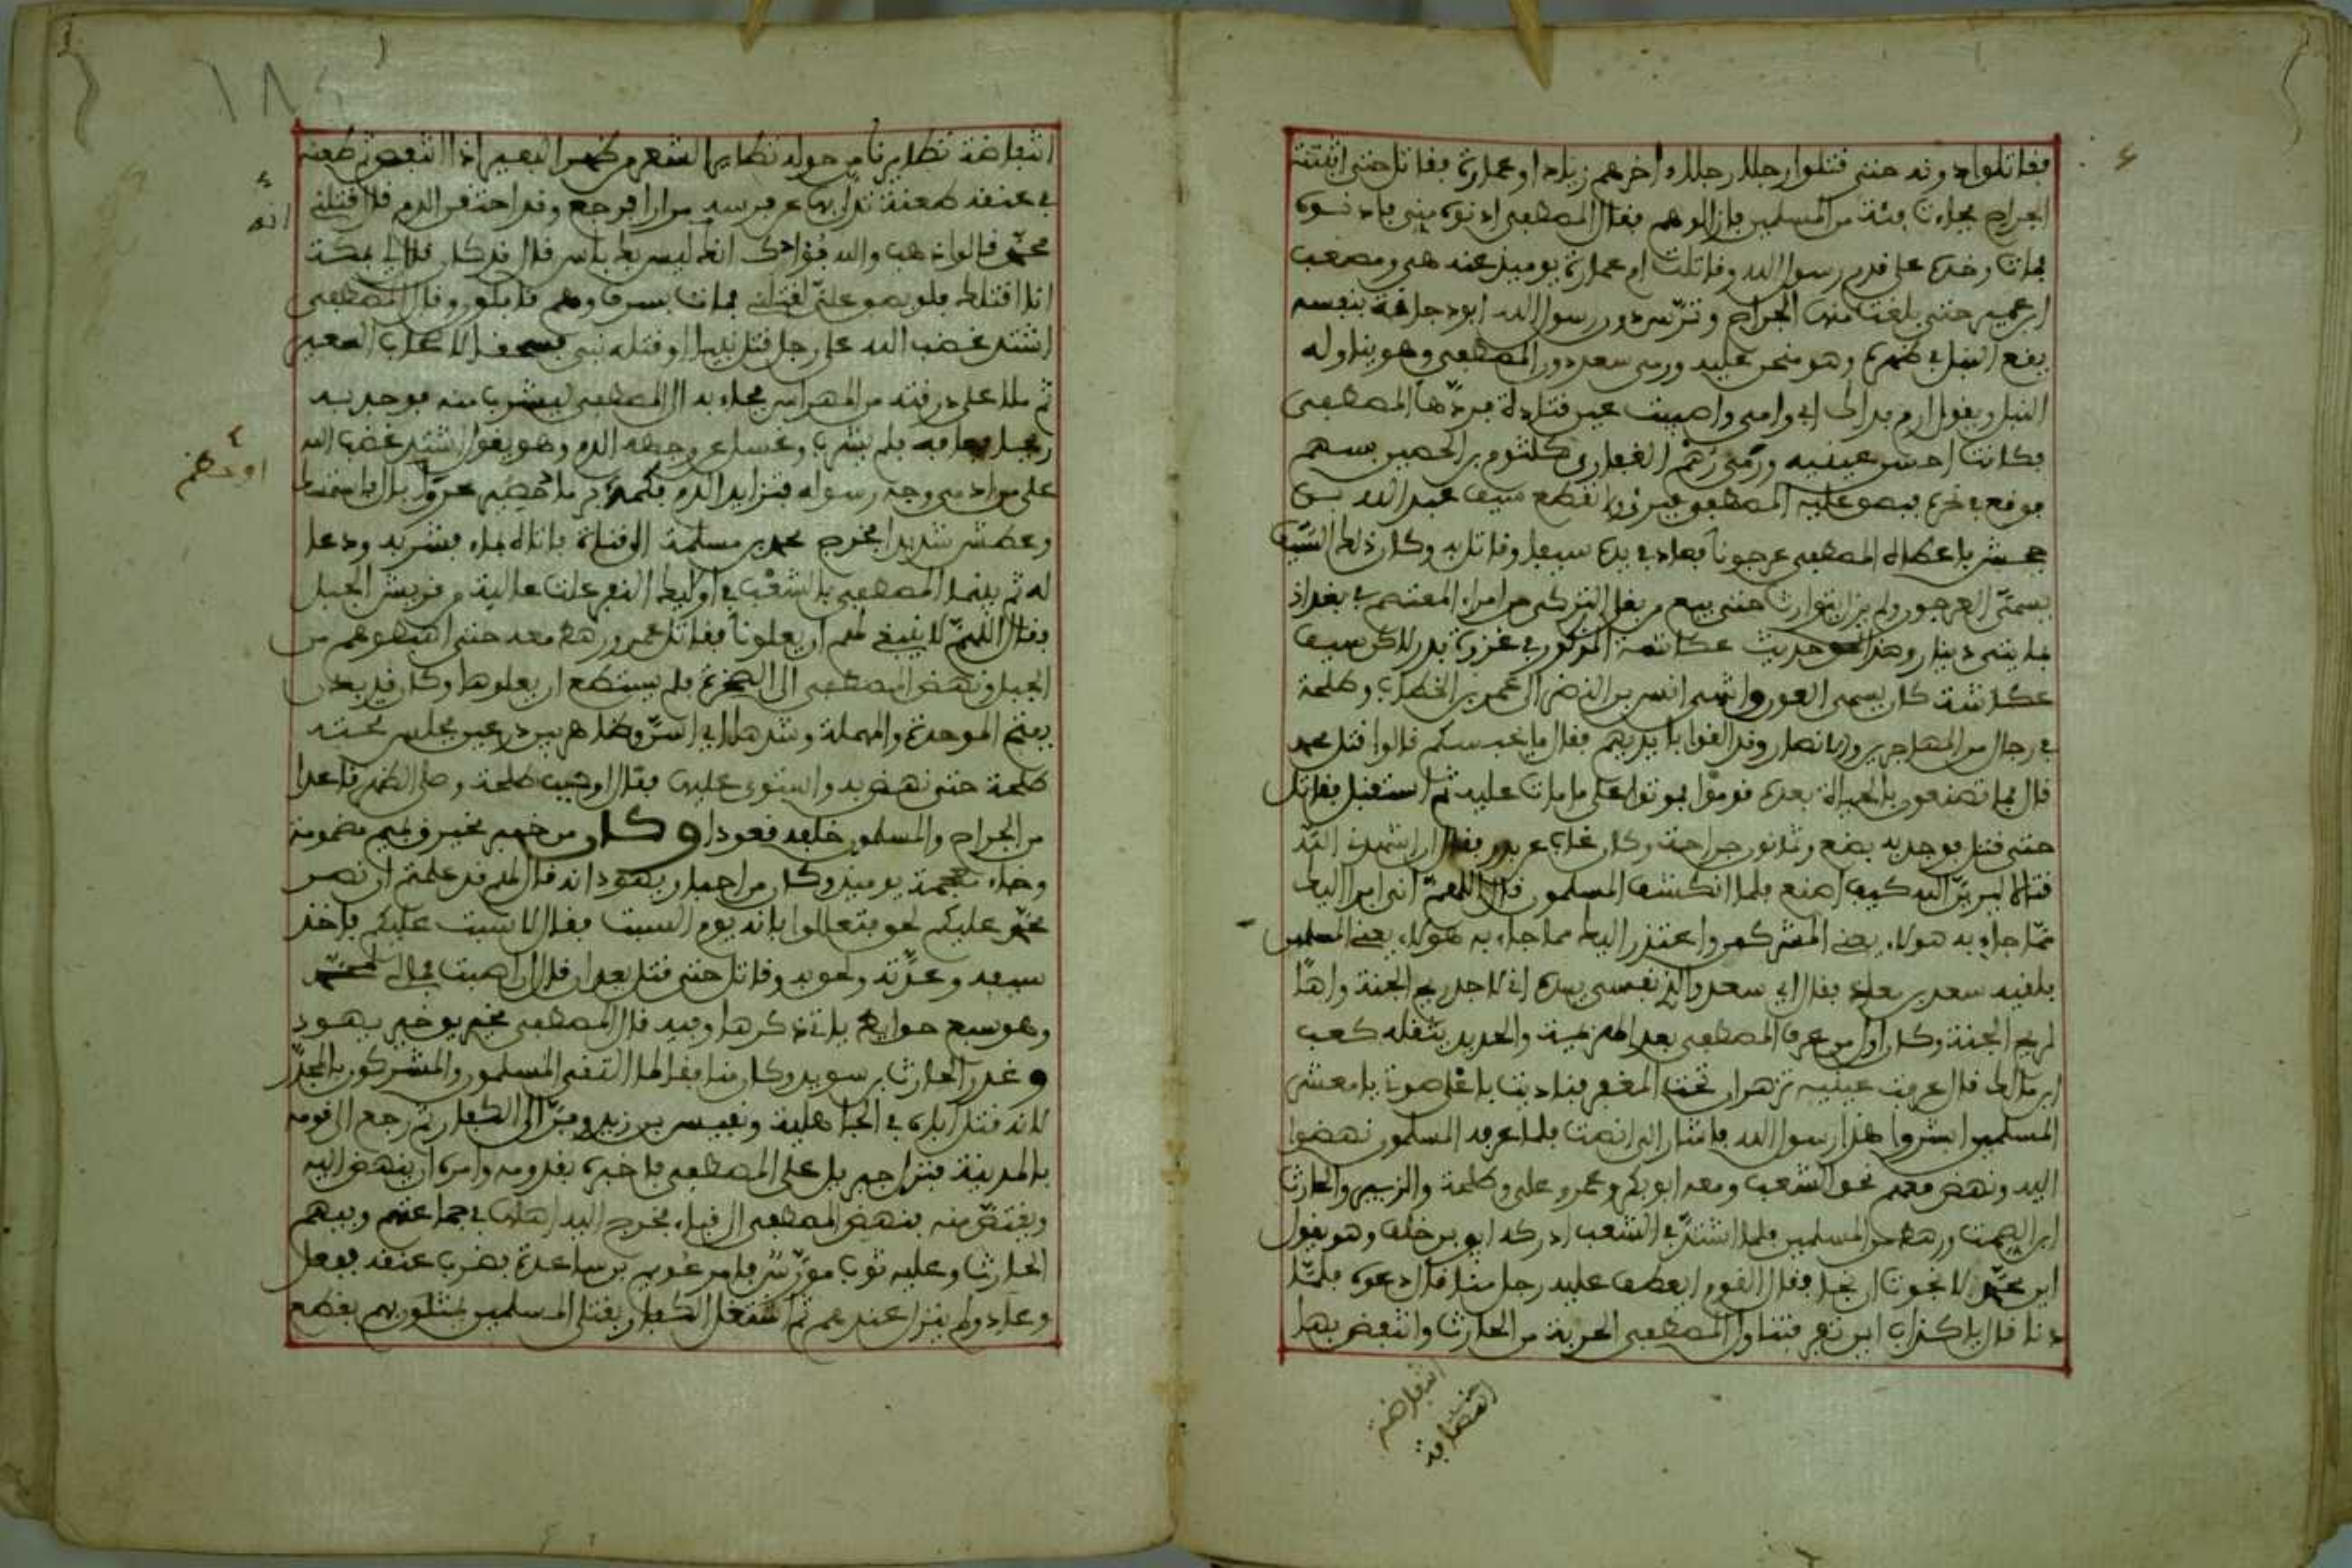 فقاتلوا دونه حتى قتلوا رجلا رجلا آخرهم زياد او عمارة فقاتل حتى اثبتته
الجراح فجاءت فئة من المسلمين فازالوهم فقال المصطفى ادنوه مني فادنوه
فمات وخده على قدم رسول الله وقاتلت ام عمارة يومئذ عنه هي ومصعب
ابن عمير حتى بلغت منها الجراح وترّس دون رسول الله ابو دجانة بنفسه
يقع النبل في ظهره وهو منحن عليه ورمى سعد دون المصطفى وهو يناوله
النبل ويقول ارم فداك ابي وامي واصيبت عين قتادة فردّها المصطفى
فكانت احسن عينيه ورمي رهم الغفاري كلثوم بن الحصين بسهم
فوقع في نحره فبصق عليه المصطفى فبرئ وانقطع سيف عبد الله بن
جحش فاعطاه المصطفى عرجونا فعاد في يده سيفا وقاتل به وكان ذلك السيف
يسمّى العرجون ولم يزل يتوارث حتى بيع من بغا التركي من امراء المعتصم في بغداذ
بمايتى دينار وهذا نحو حديث عكاشة المذكور في غزوة بدر لاكن سيف
عكاشة كان يسمى العون وانتهى انس بن النضر الى عمر بن الخطاب وطلحة
في رجال من المهاجرين والانصار وقد القوا بايديهم فقال ما يحبسكم قالوا قتل محمد
قال فما تصنعون بالحياة بعده قوموا فموتوا على ما مات عليه ثم استقبل فقاتل
حتى قتل فوجد به بضع وثمانون جراحة وكان غاب عن بدر فقال ان اشهدني الله
قتالا ليرينّ الله كيف اصنع فلما انكشف المسلمون قال اللهمّ اني ابرا اليك
مما جاء به هولاء يعني المشركين واعتذر اليك مما جاء به هولاء يعني المسلمين
فلقيه سعد بن معاذ فقال اي سعد والذي نفسي بيده اني لاجد ريح الجنة واها
لريح الجنة وكان اول من عرف المصطفى بعد الهزيمة والحديث بقتله كعب
ابن مالك قال عرفت عينيه تزهران تحت المغفر فناديت باعلى صوتي يا معشر
المسلمين ابشروا هذا رسول الله فاشار الي انصت فلما عرفه المسلمون نهضوا
اليه ونهض معهم نحو الشعب ومعه ابو بكر وعمر وعلي وطلحة والزبير والحارث
ابن الصمت ورهط من المسلمين فلما اشتدّ في الشعب ادركه ابي بن خلف وهو يقول
اين محمد لا نجوت ان نجا فقال القوم ايعطف عليه رجل منا قال دعوه فلمّا
دنا قال يا كذاب اين تفر فتناول المصطفى الحربة من الحارث وانتفض بها
انتفاضة
انتفاضة تطايرنا من حوله تطاير الشعر من ظهر البعير اذا انتفض ثم طعنه
في عنقه طعنة تدادا بها عن فرسه مرارا فرجع وقد احتقن الدم قال قتلني
محمد قالوا ذهب والله فؤادك انه ليس بك باس قال قد كان قال لي بمكة
انا اقتلك فلو بصق عليّ لقتلني فمات بسرف وهم قافلون وقال المصطفى
اشتد غضب الله على رجل قتل نبيا او قتله نبي فسحقا لاصحاب السعير
ثم ملا علي درقته من المهراس فجاء به الى المصطفى ليشرب منه فوجد به
ريحا فعافه فلم يشرب وغسل عن وجهه الدم وهو يقول اشتد غضب الله
على من ادمى وجه رسوله فتزايد الدم
وعطش شديدا فخرج محمد بن مسلمة الى قناة فاتاه بماء فشربه ودعا
له ثم بينما المصطفى بالشعب في اوليك النفر علت عالية من قريش الجبل
فقال اللهمّ لا ينبغي لهم ان يعلونا فقاتل عمر ورهط معه حتى اهبطوهم من
الجبل ونهض المصطفى الى الصخرة فلم يستطع ان يعلوها وكان قد بدن
بفتح الموحدة والمهملة وشدها اي اسنّ وظاهر بين درعين فجلس تحته
طلحة حتى نهض به واستوى عليها فقال اوجب طلحة وصلى الظهر قاعدا
من الجراح والمسلمون خلفه قعودا وكان من خبر مخيريق بميم مضمومة
وخاء معجمة يومئذ وكان من احبار يهود انه قال لهم قد علمتم ان نصر
محمد عليكم لحق فتعاللوا بانه يوم السبت فقال لا سبت عليكم فاخذ
سيفه وعدّته ولحق به وقاتل حتى قتل بعد ان قال ان اصبت فمالي لمحمد
وهو سبع حوايط ياتي ذكرها وفيه قال المصطفى مخيريق خير يهود
وغدر الحارث بن سويد وكان منافقا لما التقى المسلمون والمشركون بالمجذّر
لانه قتل اباه في الجاهلية وبقيس بن زيد وفرّ الى الكفار ثم رجع الى قومه
بالمدينة فنزل جبريل على المصطفى فاخبره بقدومه وامره ان ينهض اليه
ويقتصّ منه فنهض المصطفى الى قباء فخرج اليه اهلها في جماعتهم وفيهم
الحارث وعليه ثوب مورّس فامر عويم بن ساعدة بضرب عنقه ففعل
وعاد ولم ينزل عندهم ثم اشتغل الكفار بقتلى المسلمين يمثلون بهم بقطع